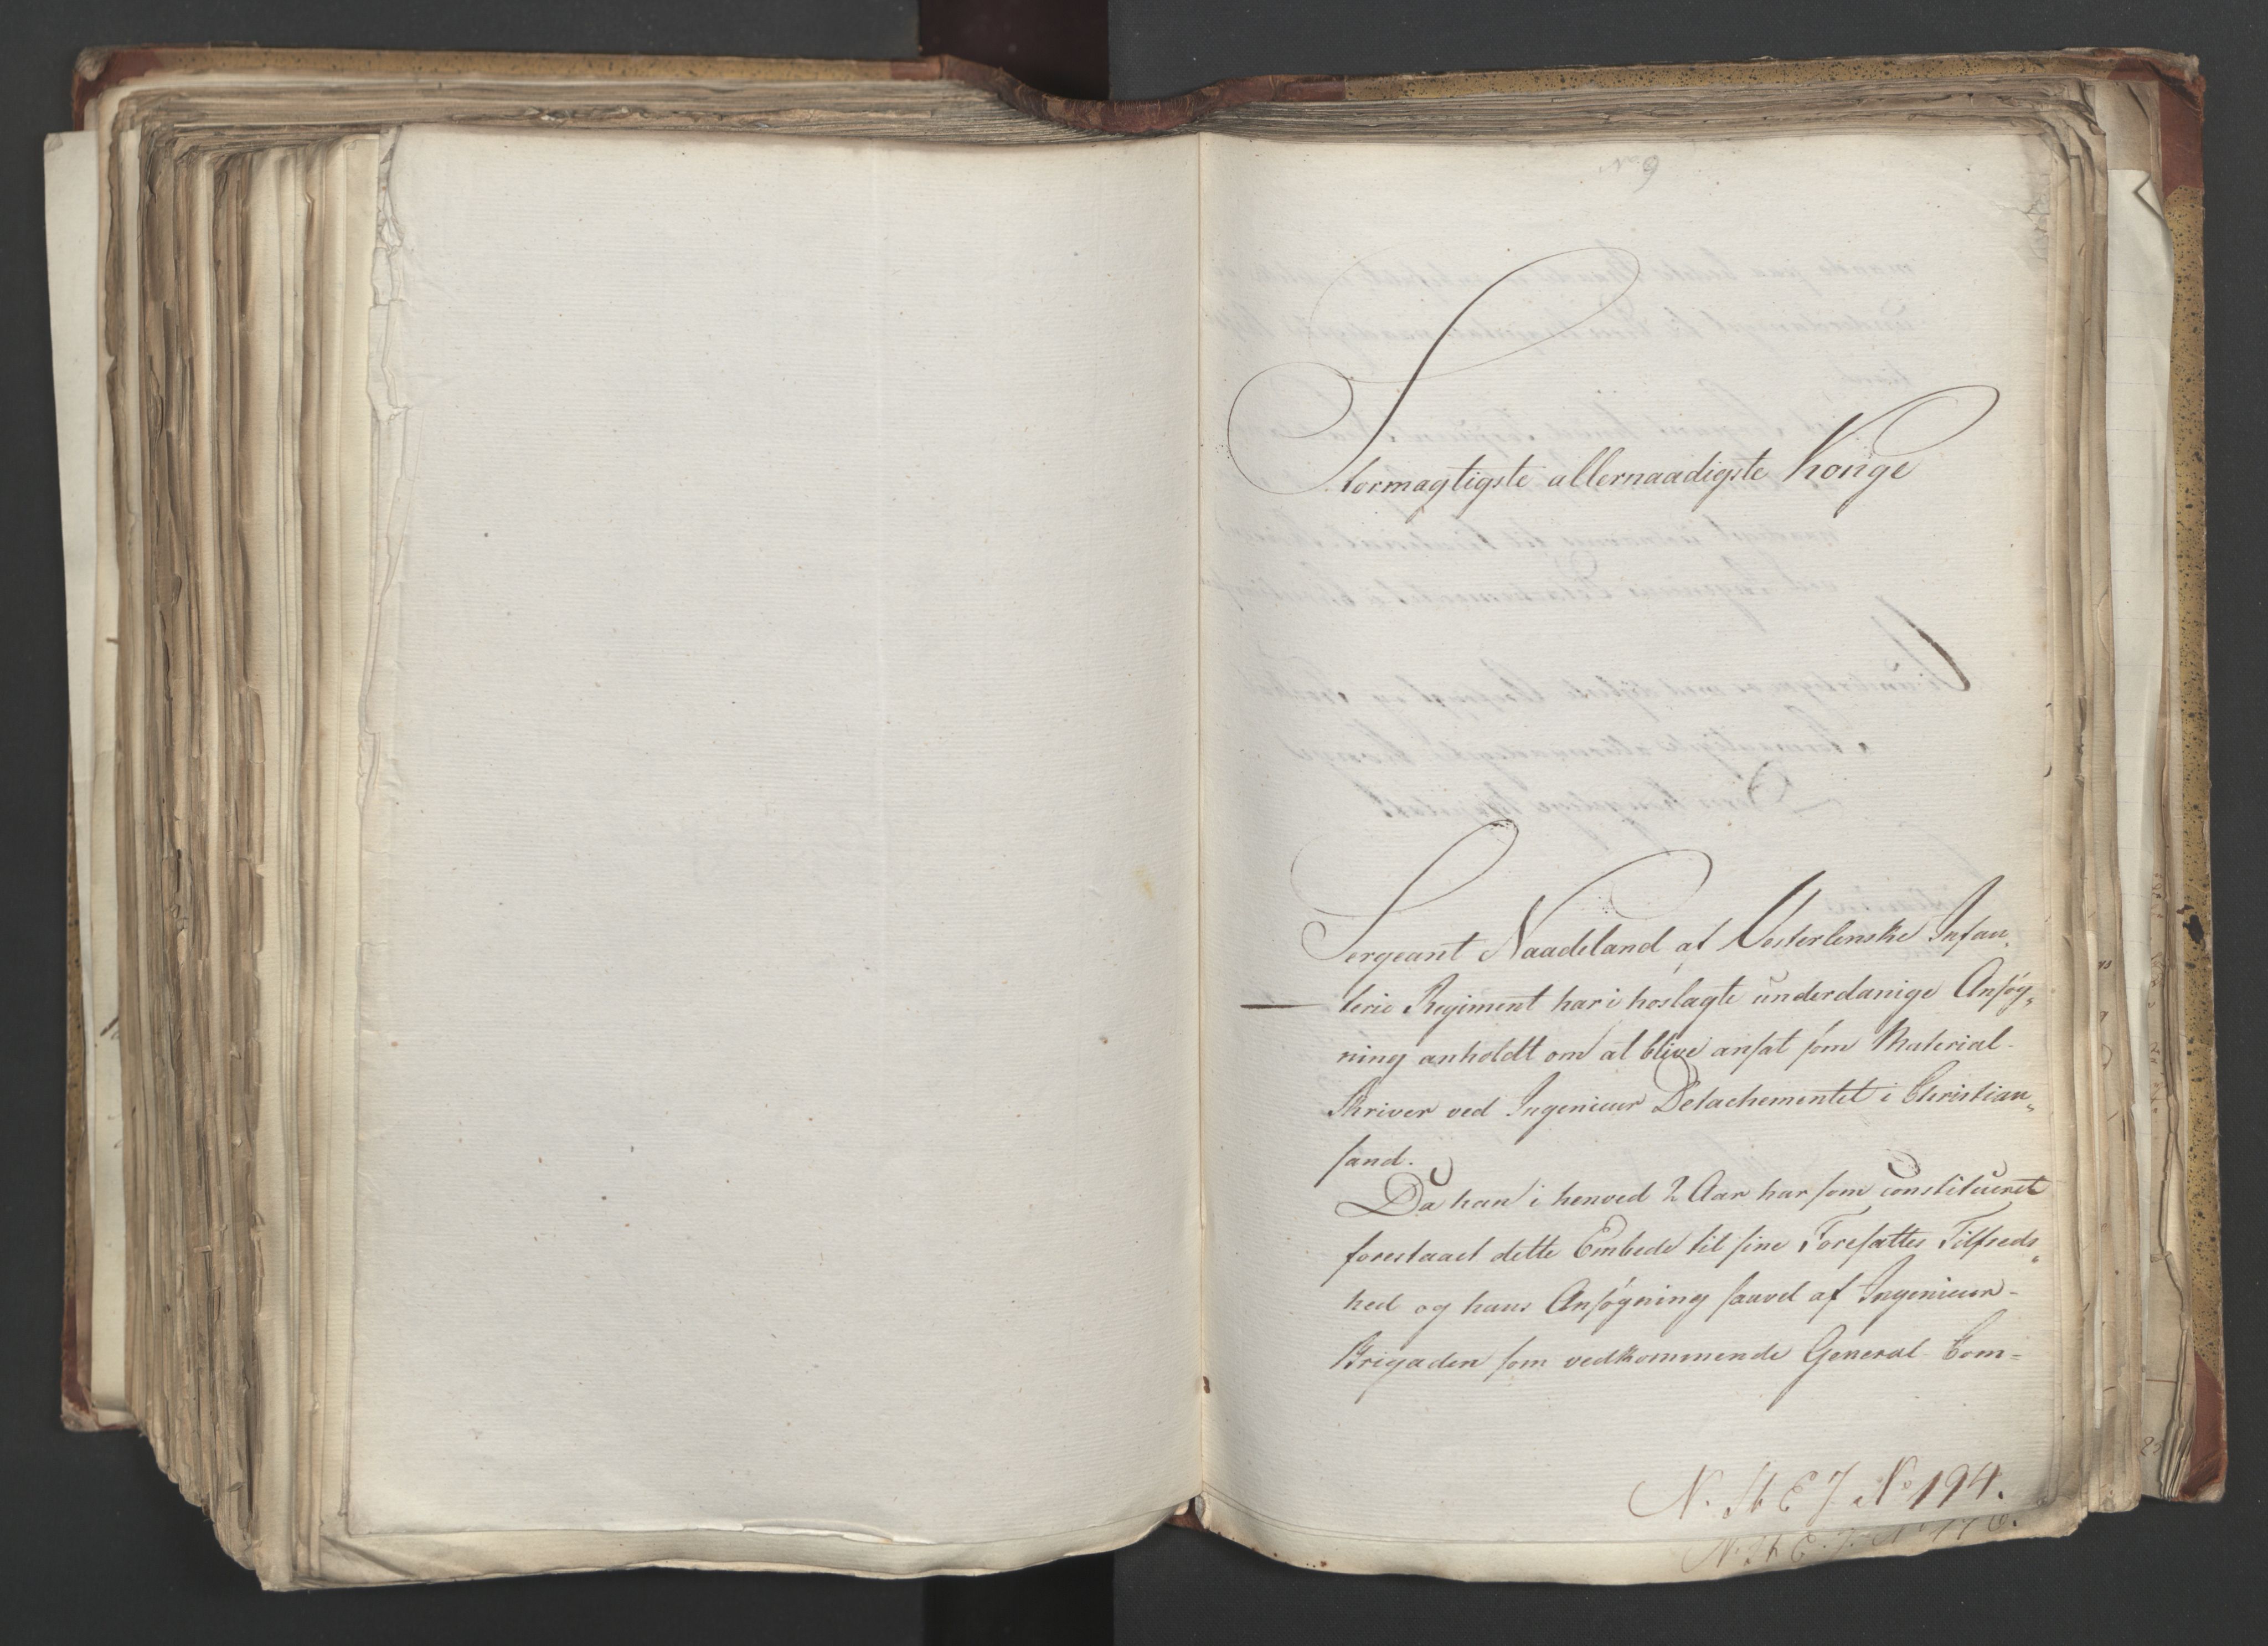 No 9
Stormagtigste allernaadigste Konge
Sergeant Naadeland af Vesterlenske Infan„
terie Regiment har i hoslagte underdanige Ansøg„
ning anholdt om at blive ansat som Material-
Skriver ved Ingenieur Detachementet i Christian„
sand.
Da han i henved 2 Aar har som constitueret
forestaaet dette Embede til sine Foresattes Tilfreds„
hed og hans Ansøgning saavel af Ingenieur-
Brigaden som vedkommende General Com=
N. St E J. No 194.